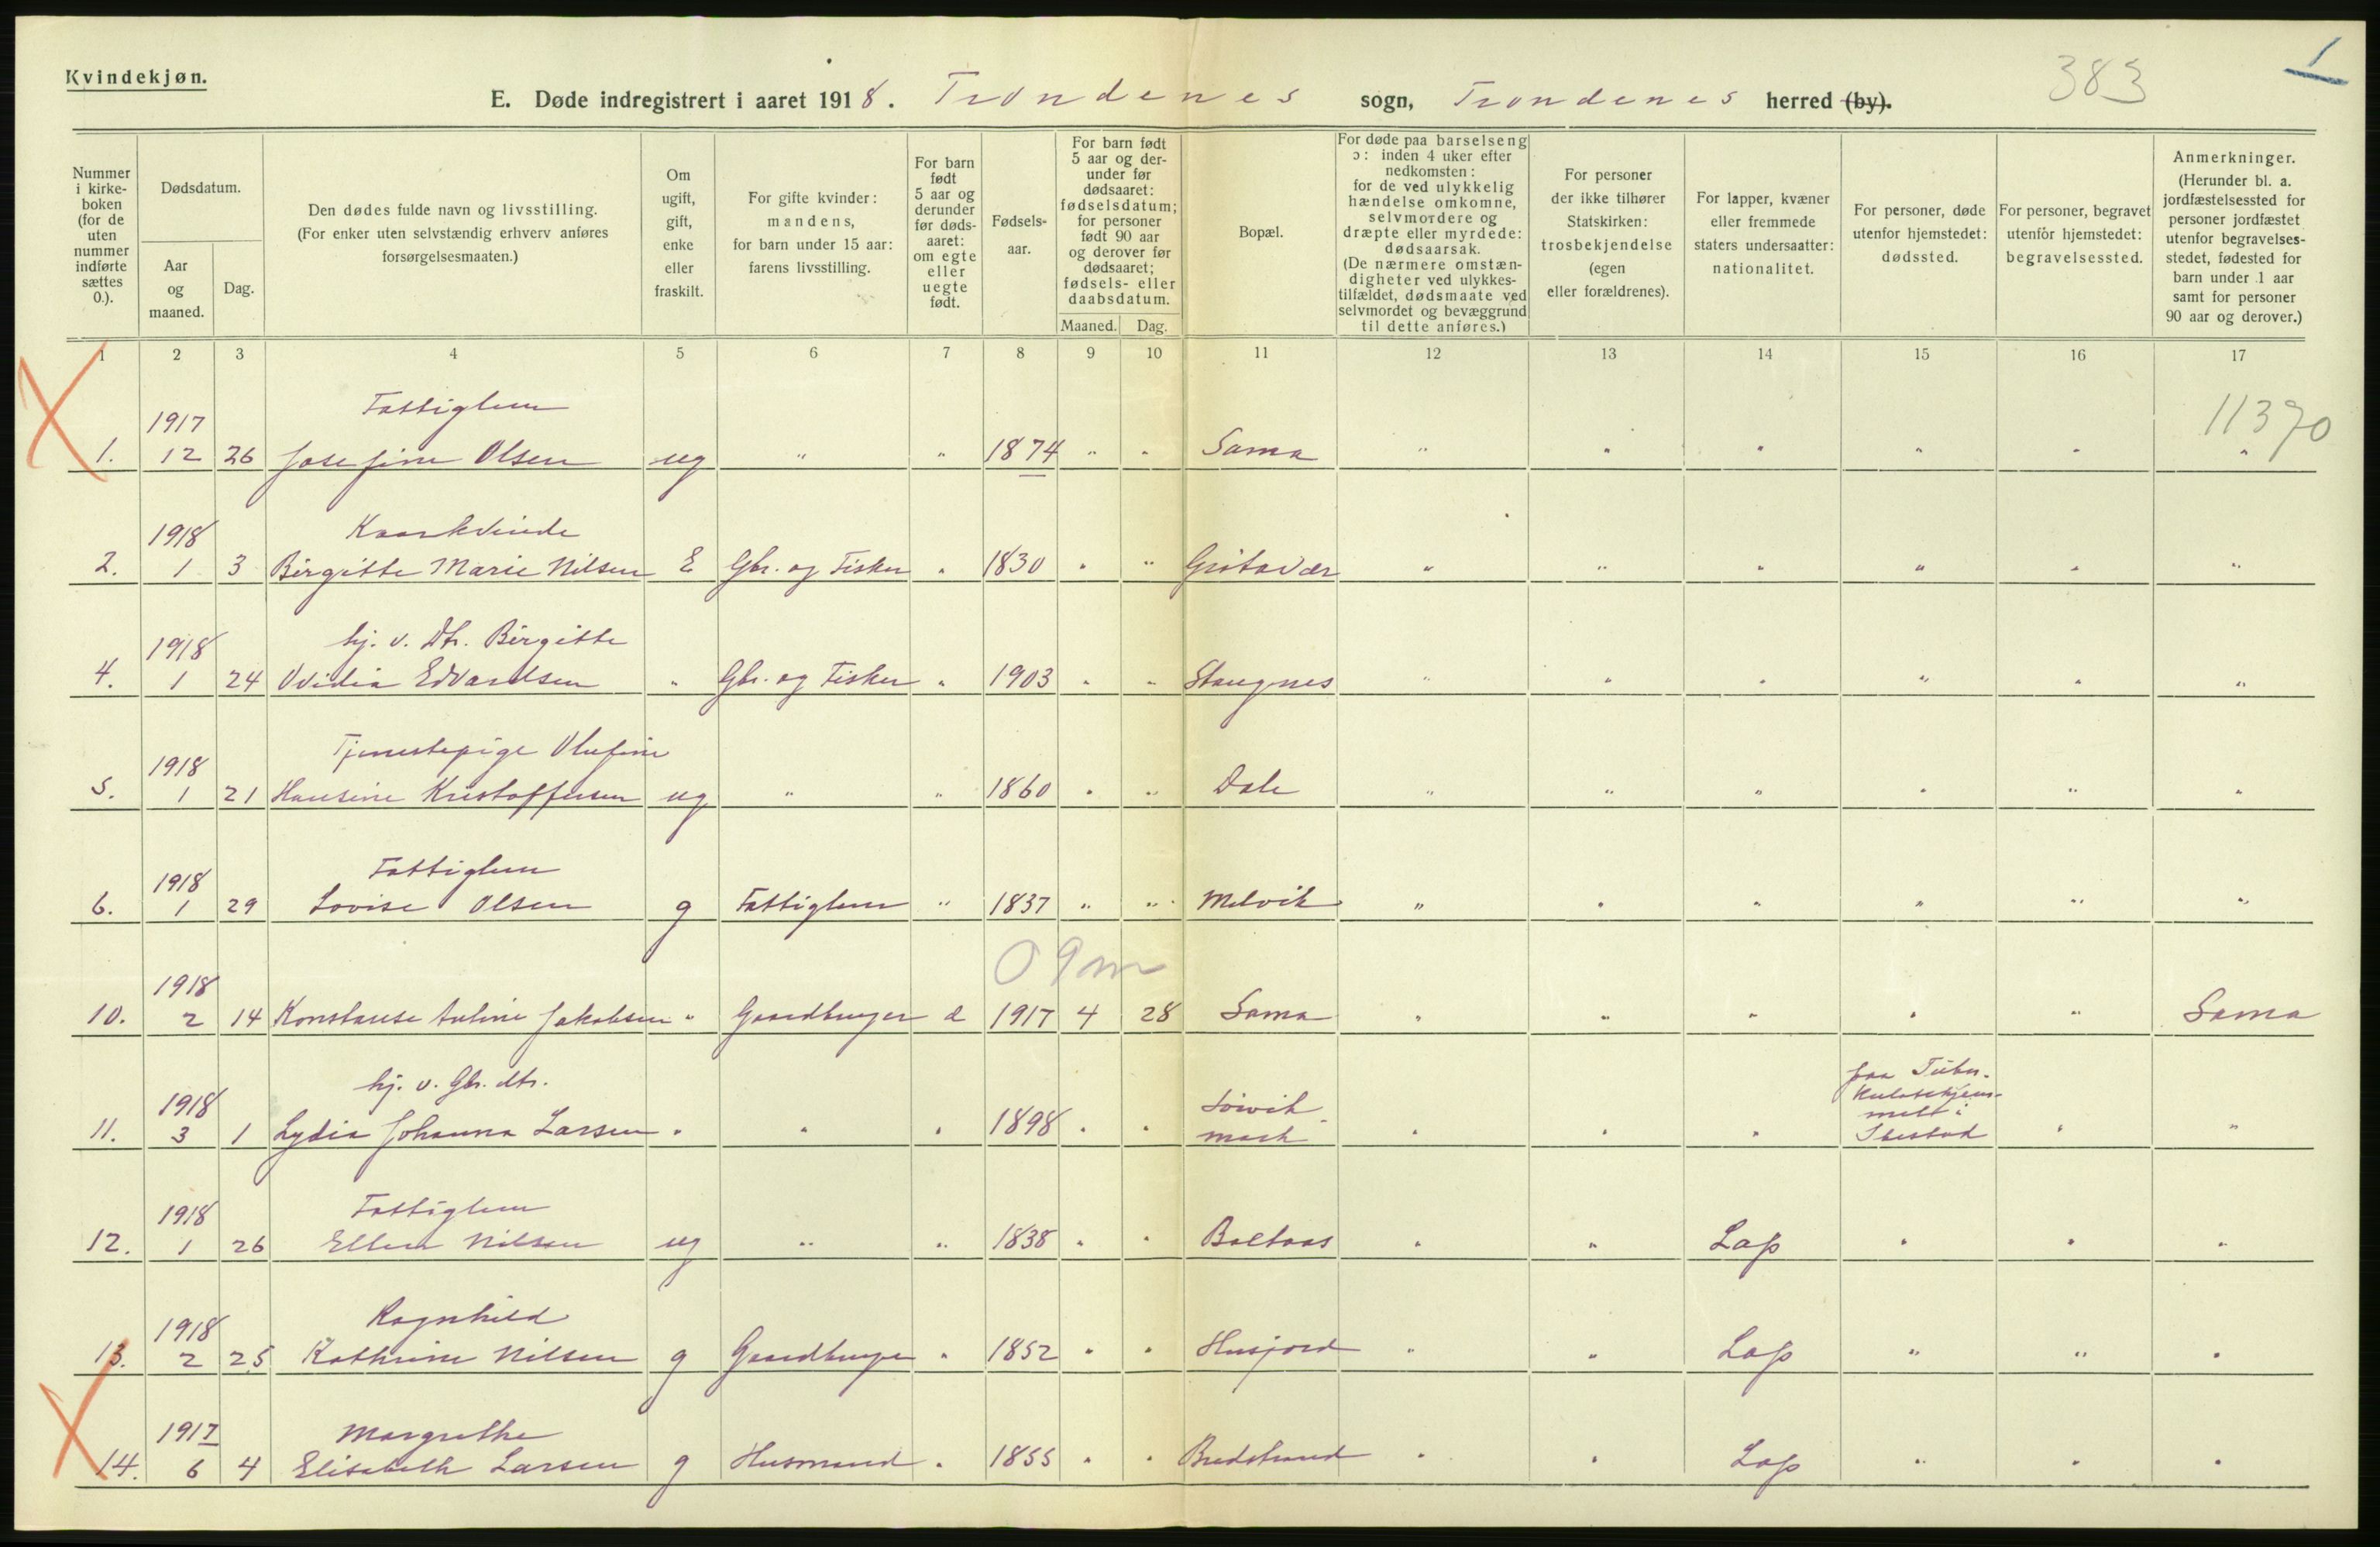 Kvindekjøn.
E. Døde indregistrert i aaret 1918. Trondenes sogn, Trondenes herred (by).
383
1
Nummer i kirkeboken (for de uten nummer indførte sættes 0.).
Dødsdatum.
Aar og maaned.
Dag.
Den dødes fulde navn og livsstilling.
(For enker uten selvstændig erhverv anføres forsørgelsesmaaten.)
Om ugift, gift, enke eller fraskilt.
For gifte kvinder: mandens, for barn under 15 aar: farens livsstilling.
For barn født 5 aar og derunder før dødsaaret: om egte eller uegte født.
Fødselsaar.
For barn født 5 aar og derunder før dødsaaret: fødselsdatum; for personer født 90 aar og derover før dødsaaret; fødsels- eller daabsdatum.
Maaned. Dag.
Bopæl.
For døde paa barselseng ɔ: inden 4 uker efter nedkomsten: for de ved ulykkelig hændelse omkomne, selvmordere og dræpte eller myrdede: dødsaarsak. (De nærmere omstændigheter ved ulykkestilfældet, dødsmaate ved selvmordet og bevæggrund til dette anføres.)
For personer der ikke tilhører Statskirken: trosbekjendelse (egen eller forældrenes).
For lapper, kvæner eller fremmede staters undersaatter: nationalitet.
For personer, døde utenfor hjemstedet: dødssted.
For personer, begravet utenfor hjemstedet: begravelsessted.
Anmerkninger. (Herunder bl. a. jordfæstelsessted for personer jordfæstet utenfor begravelsesstedet, fødested for barn under 1 aar samt for personer 90 aar og derover.)
1 2 3 4 5 6 7 8 9 10 11 12 13 14 15 16 17
1917 Fattiglem 11370
1. 12 26 Josefine Olsen ug " " 1874 " " Sama " " " " " "
1918 Kaarkvinde
2. 1 3 Birgitte Marie Nilsen E Gbr. og Fisker " 1830 " " Grøtavær " " " " " "
1918 hj. v. Dtr. Birgitte
4. 1 24 Ovidia Edvardsen " Gbr. og Fisker " 1903 " " Stangnes " " " " " "
1918 Tjenestepige Olufine
5. 1 21 Hansine Kristoffersen ug " " 1860 " " Dale " " " " " "
1918 Fattiglem
6. 1 29 Lovise Olsen g Fattiglem " 1837 " " Melvik " " " " " "
1918 0 9m
10. 2 14 Konstanse Antine Jakobsen " Gaardbruger 1917 4 28 Sama " " " " " Sama
1918 hj. v. Gbr. dtr.
11. 3 1 Lydia Johanna Larsen " " " 1898 " " Sørvikmark " " " paa Tuberkulosehjemmet i Ibestad " "
1918 Fattiglem
12. 1 26 Ellen Nilsen ug " " 1838 " " Boltaas " " Lap " " "
1918 Ragnhild
13. 2 25 Kathrine Nilsen g Gaardbruger " 1852 " " Husjord " " Lap " " "
1917 Margrethe
14. 6 4 Elisabeth Larsen g Husmand " 1855 " " Bredstrand " " Lap " " "